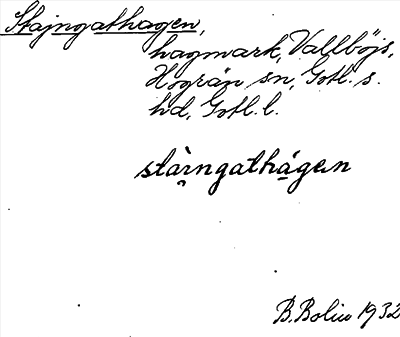 Stajngathagen,
hagmark, Vallböjs,
Hogrän sn, Gotl. s.
hd, Gotl. l.
stàrngathágen
B. Bolin 1932